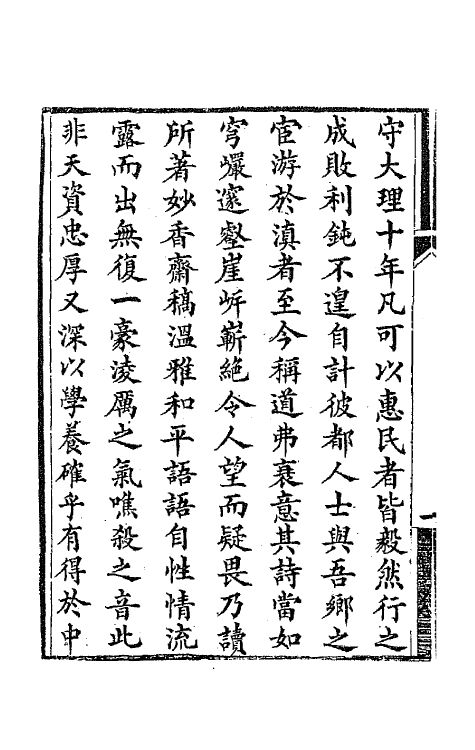 守大理十年凡可以惠民者皆毅然行之
成敗利鈍不遑自計彼都人士與吾鄉之
宦游於滇者至今稱道弗衰意其詩當如
穹巘邃壑崖㟁嶄絶令人望而疑畏乃讀
所著妙香齋稿溫雅和平語語自性情流
露而出無復一豪淩厲之氣噍殺之音此
非天資忠厚又深以學養確乎有得於中
一